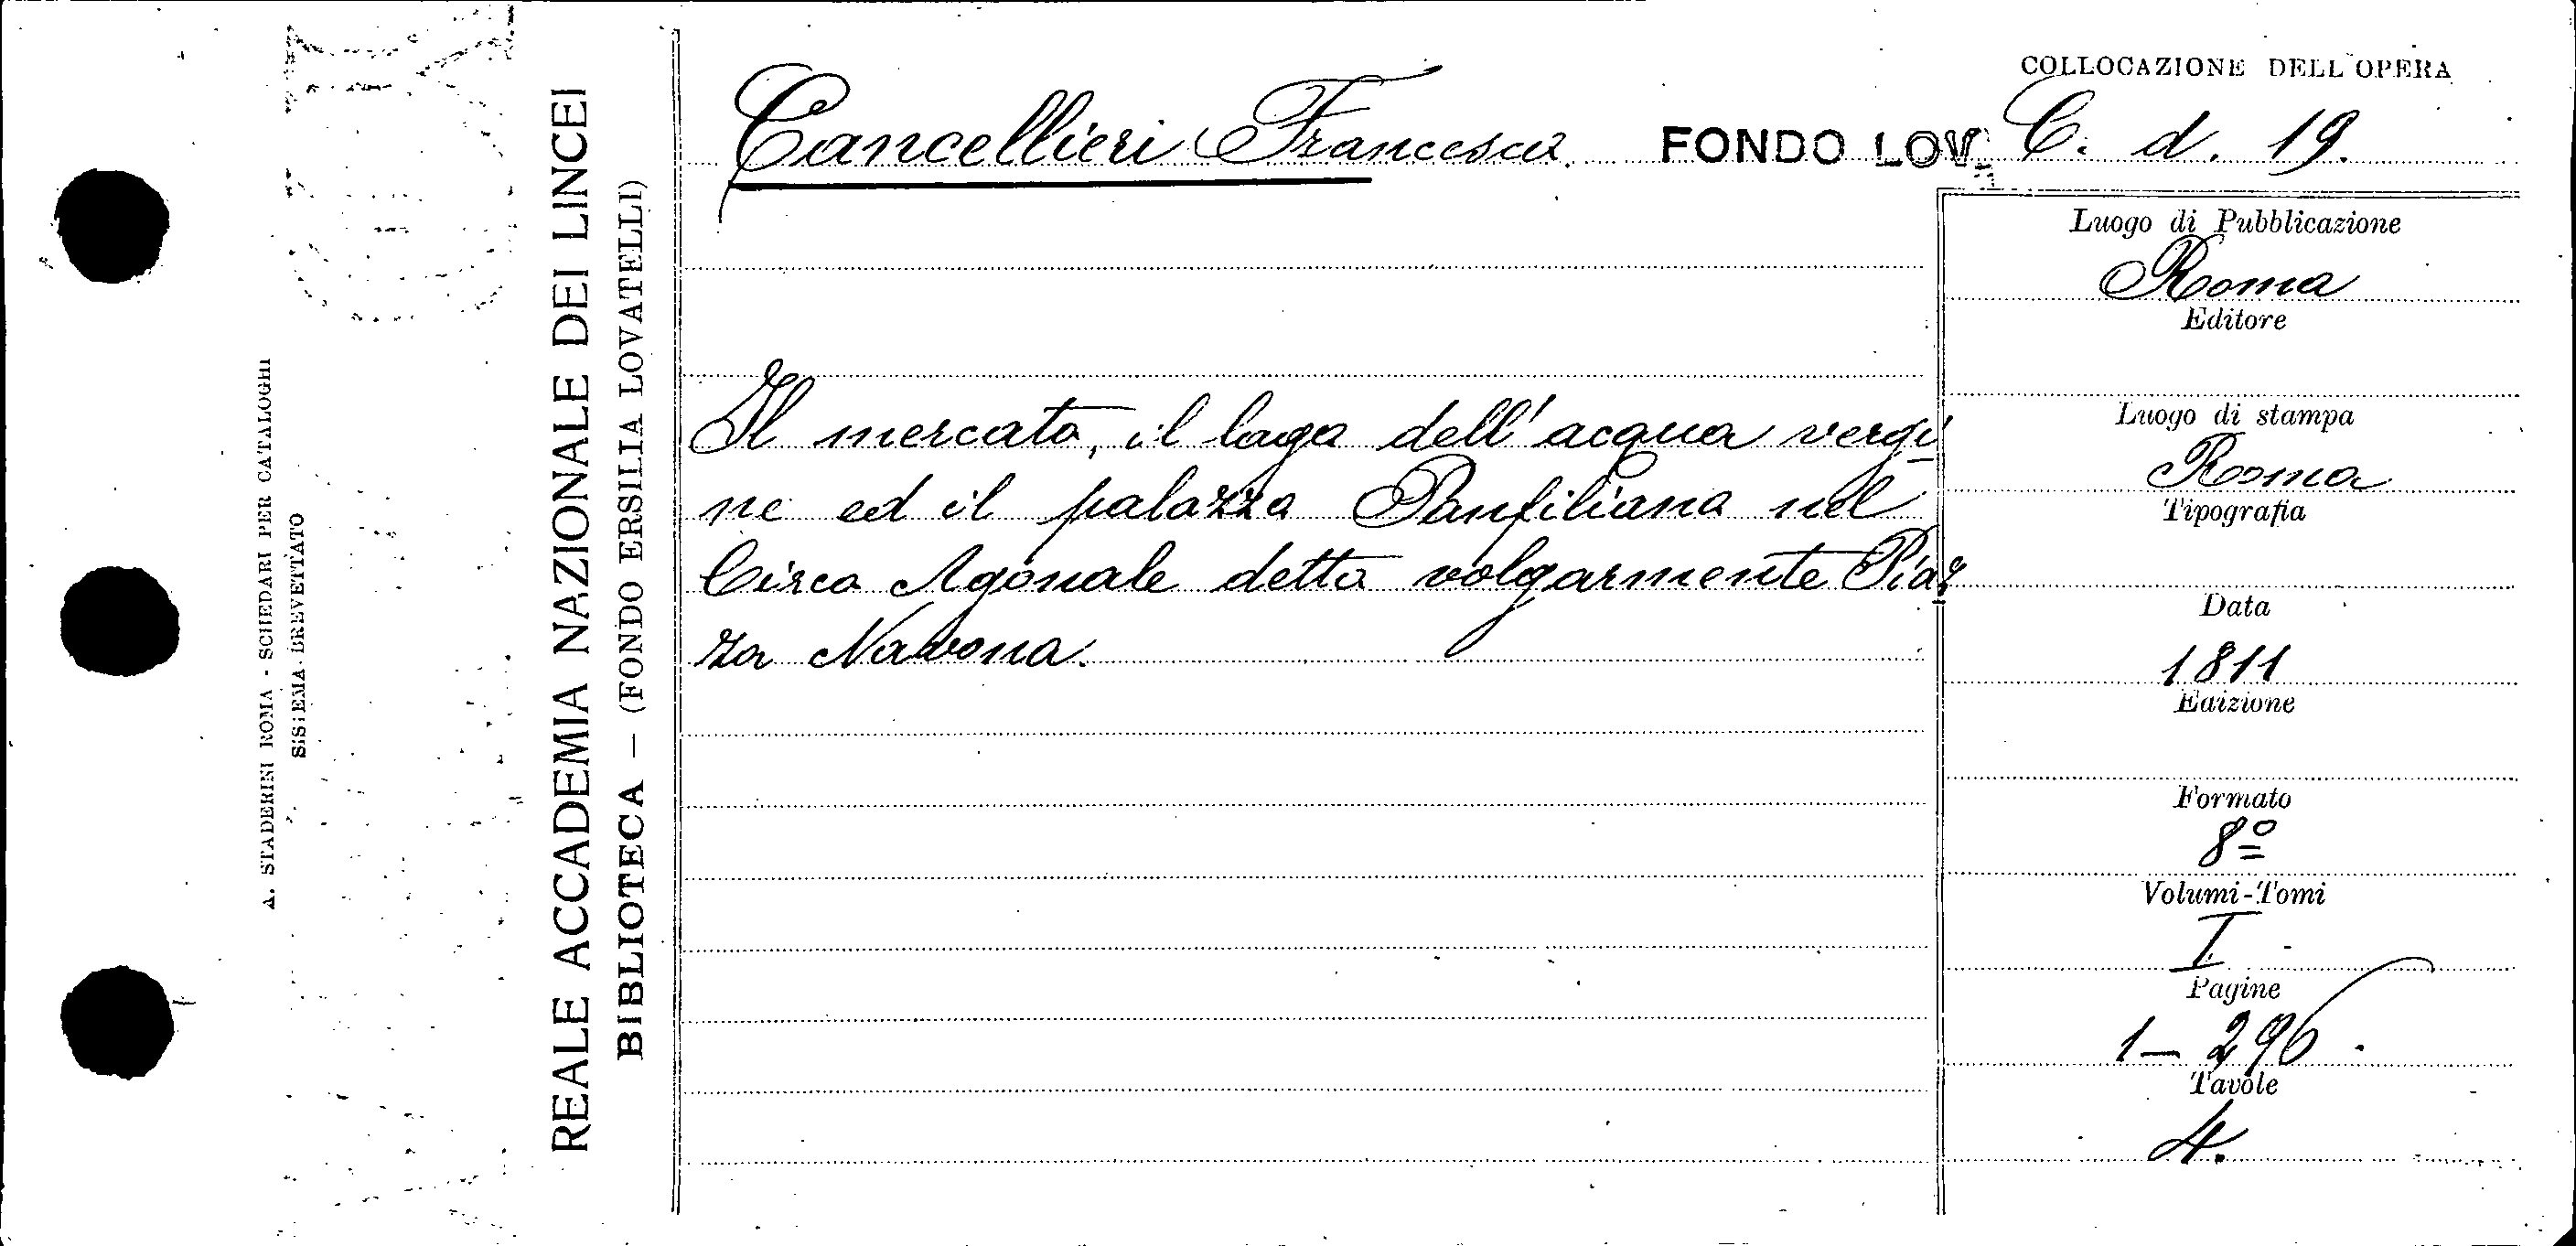 COLLOCAZIONE DELL'OPERA
Cancellieri Francesco. FONDO LOV. C. d. 19.
Il mercato, il lago dell'acqua vergi
ne ed il palazzo Panfiliano nel
Circo Agonale detto volgarmente Piaz
za Navona.
Luogo di Pubblicazione
Roma
Editore
Luogo di stampa
Roma
Tipografia
Data
1811
Edizione
Formato
8º
Volumi-Tomi
I
Pagine
1–296.
Tavole
4.
REALE ACCADEMIA NAZIONALE DEI LINCEI
BIBLIOTECA — (FONDO ERSILIA LOVATELLI)
A. STADERINI ROMA - SCHEDARI PER CATALOGHI
SISTEMA BREVETTATO